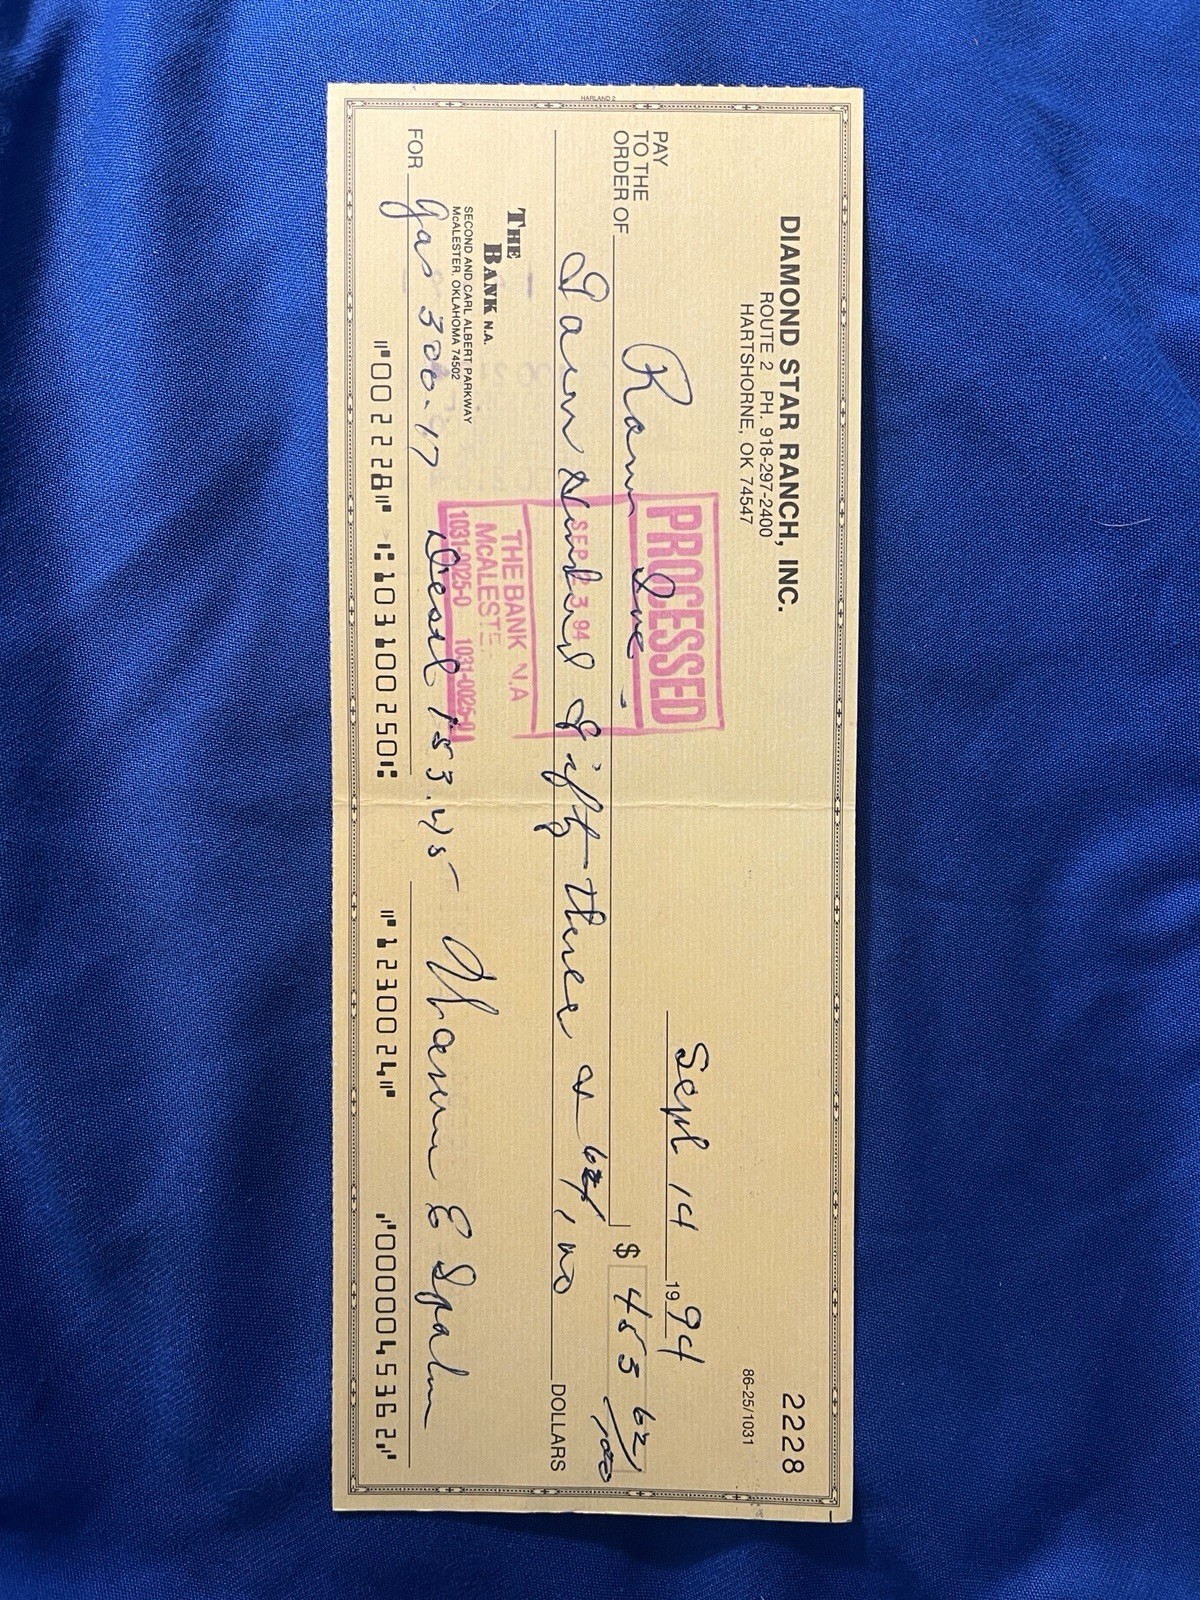 HARLAND 2
DIAMOND STAR RANCH, INC.
ROUTE 2 PH. 918-297-2400
HARTSHORNE, OK 74547
2228
86-25/1031
Sept 14 1994
PAY
TO THE
ORDER OF
$ 453 62/100
Four Hundred Fifty Three & 62/100 DOLLARS
PROCESSED
SEP 23 94
THE BANK N.A
McALESTE
1031-0025-0 1031-0025-0
THE
BANK N.A.
SECOND AND CARL ALBERT PARKWAY
McALESTER, OKLAHOMA 74502
FOR Gas 300.17 Diesel 153.45
E Spahn
⑈002228⑈ ⑆103100250⑆ ⑈1230024⑈ ⑈0000045362⑈